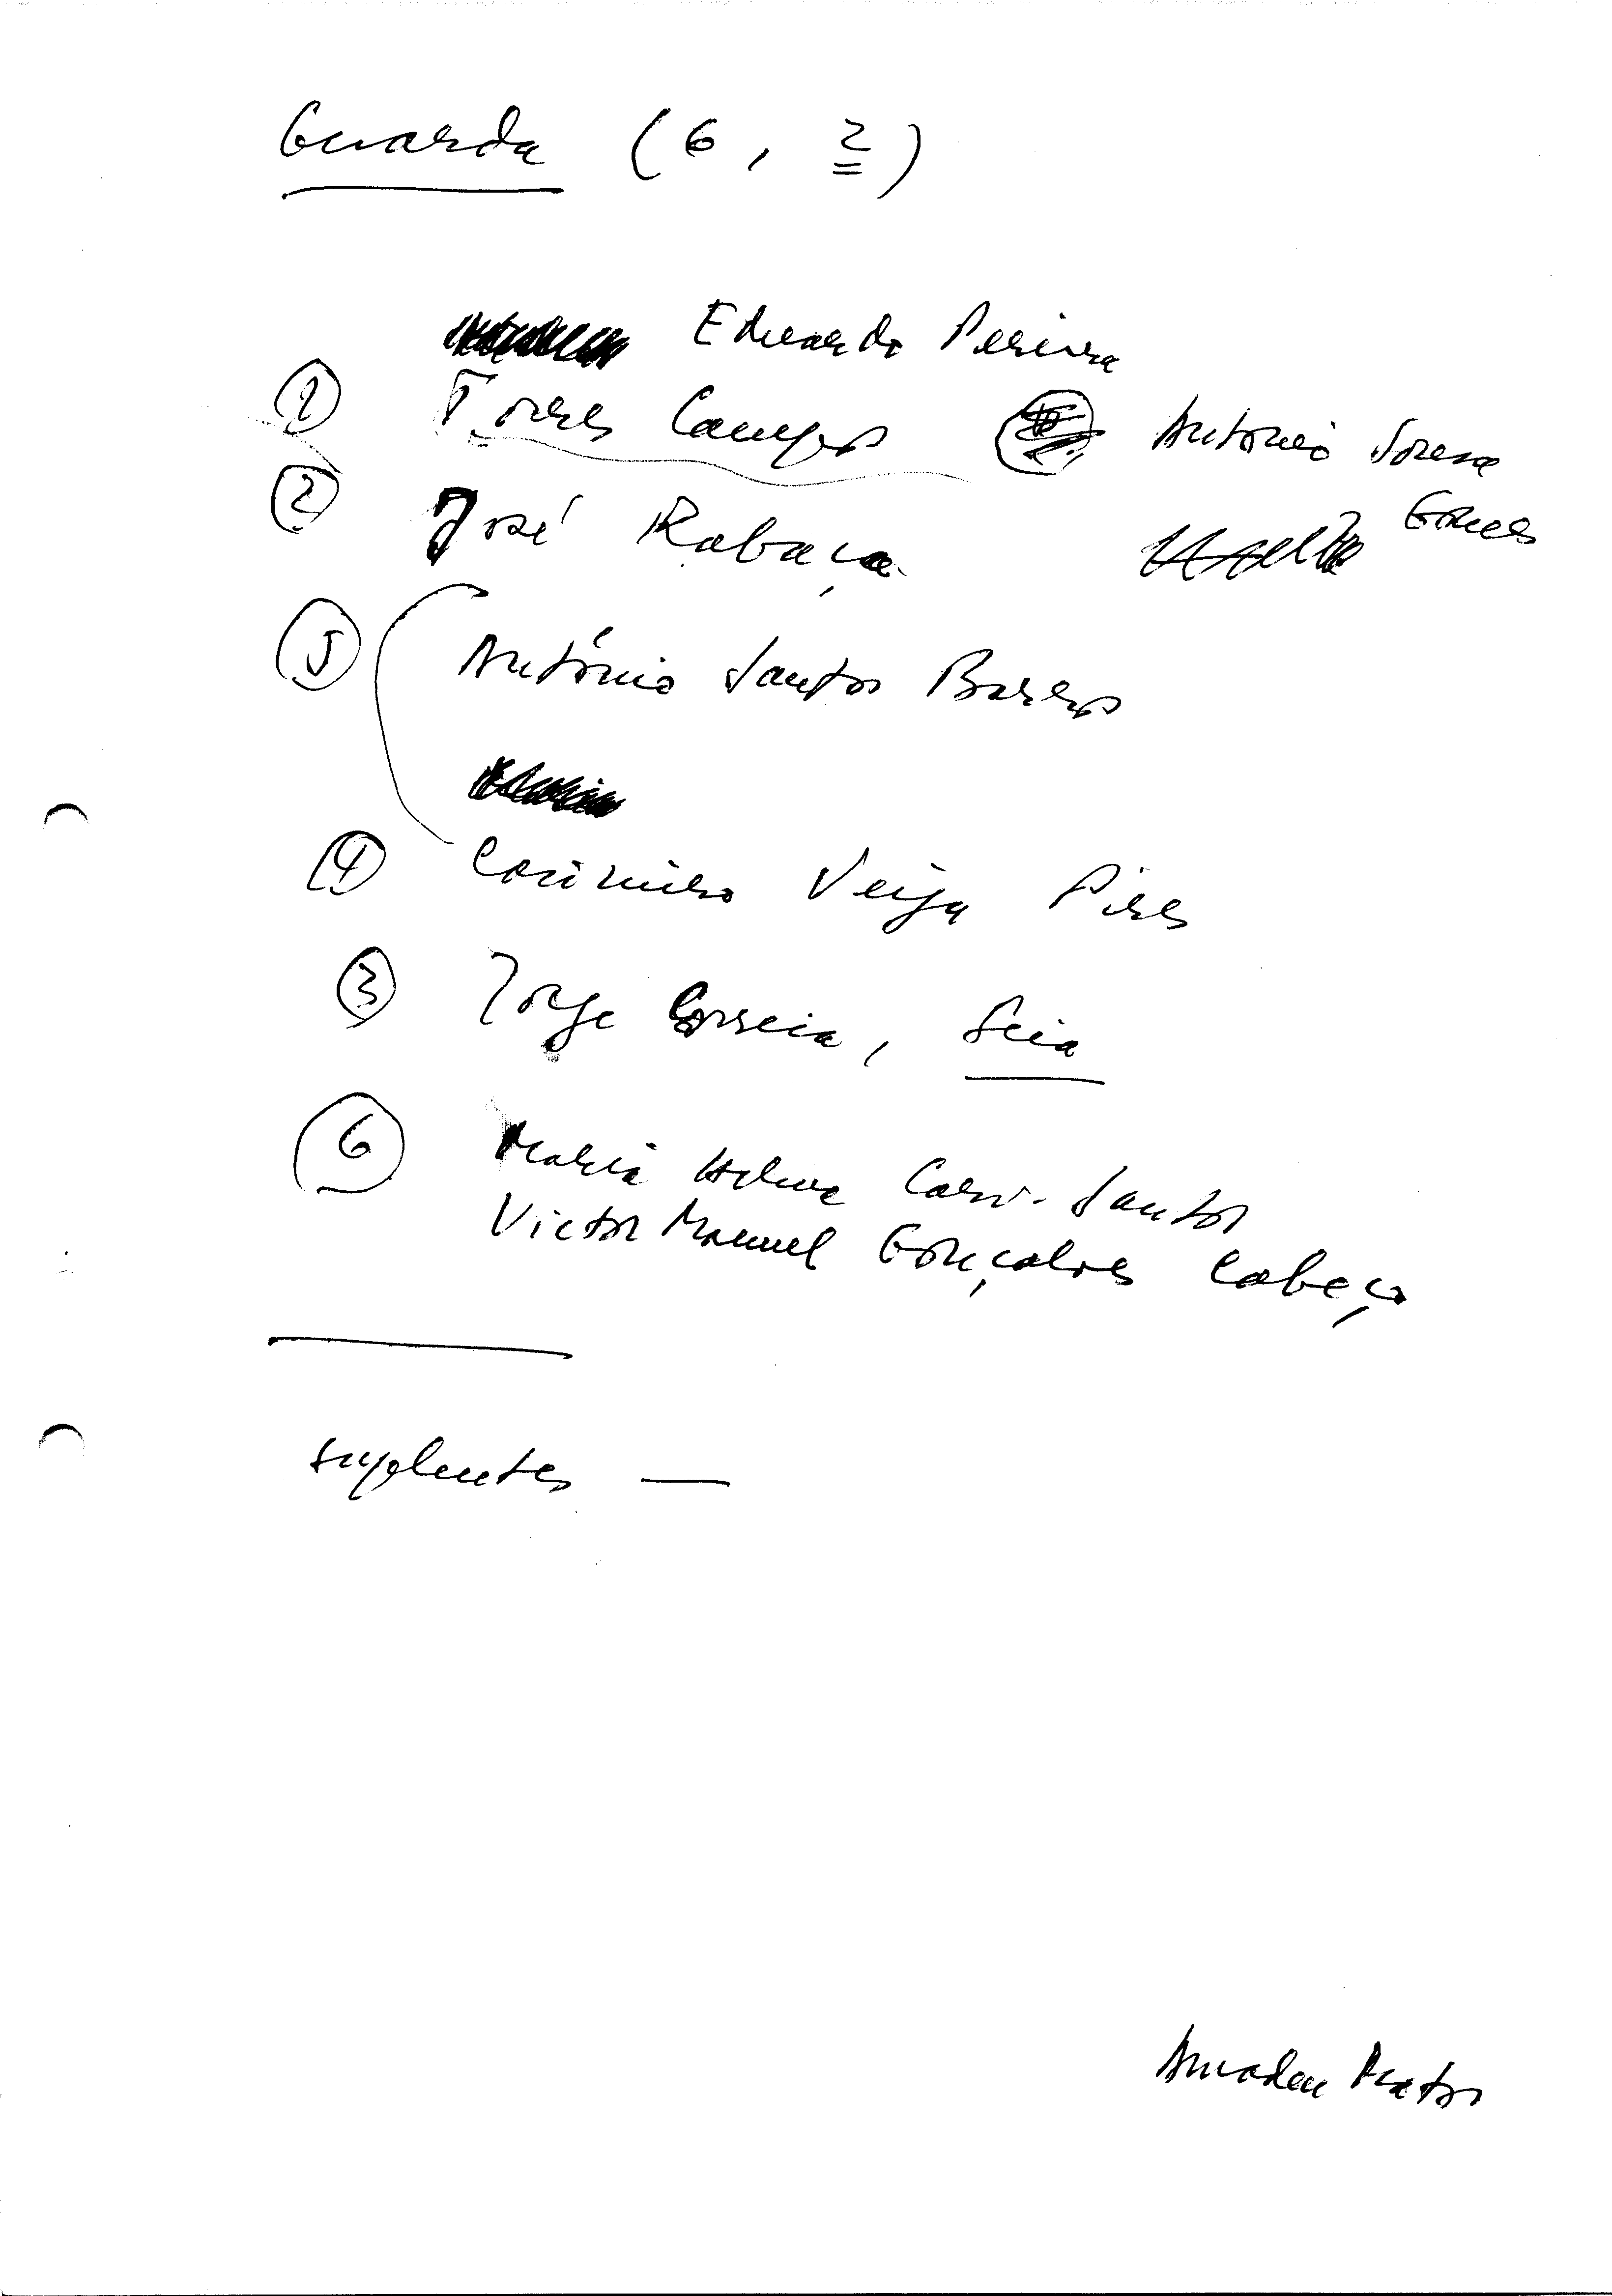 Guarda (6, 2)
Eduardo Pereira
1 Torres Campos António Sousa
2 José Rabaça Gomes
5 António Santos Barros
4 Casimiro Veiga Pires
3 Jorge Correia, Seia
6 Maria Helena Carv. Santos
Victor Manuel Gonçalves Cabeço
suplentes —
Amadeu Matos